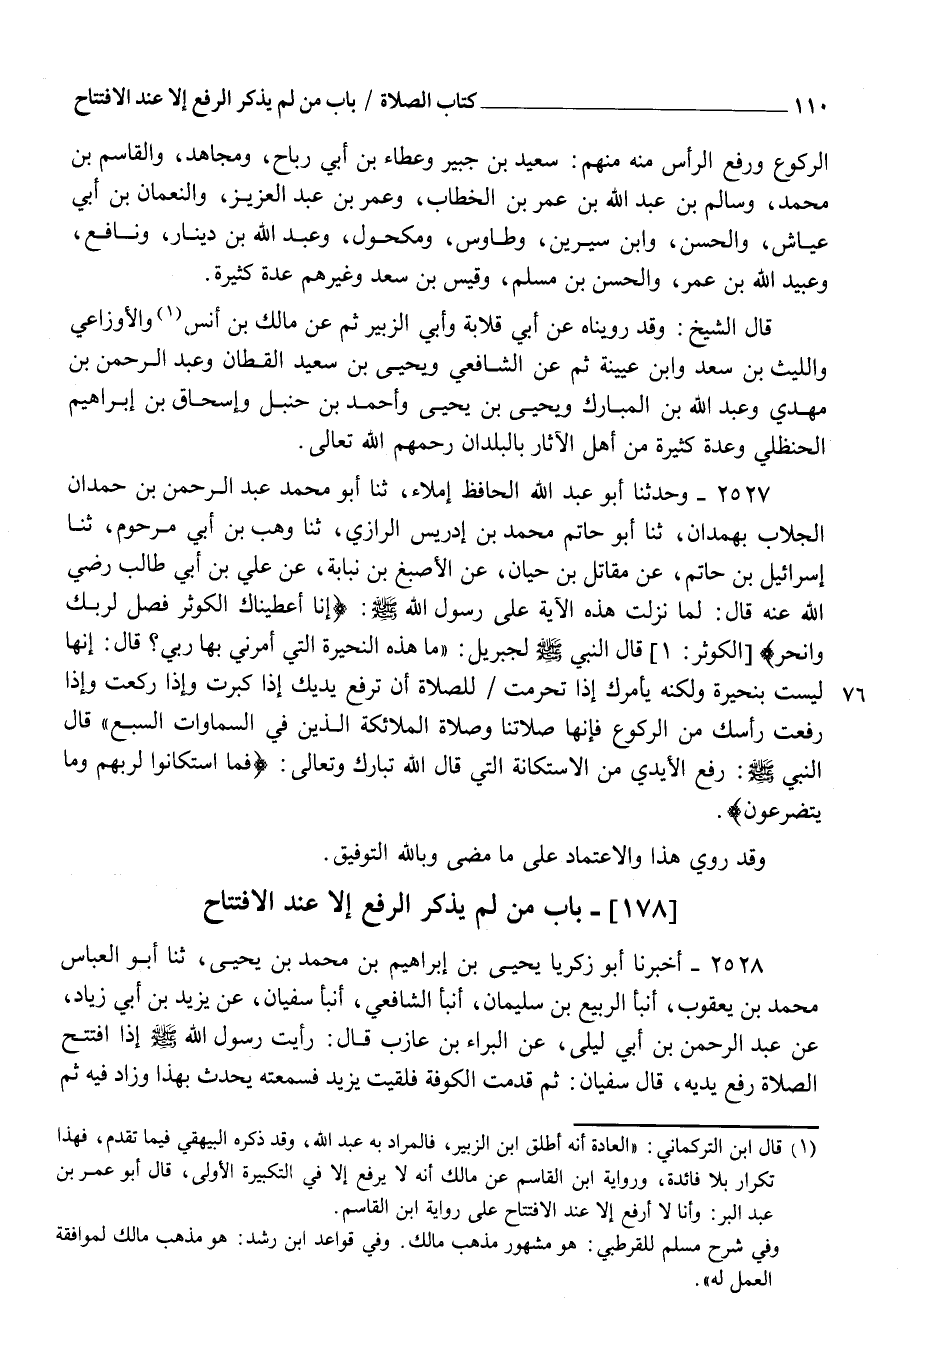 ١١٠ ــــــــــــــــــــــــــــــــ كتاب الصلاة / باب من لم يذكر الرفع إلا عند الافتتاح
الركوع ورفع الرأس منه منهم: سعيد بن جبير وعطاء بن أبي رباح، ومجاهد، والقاسم بن
محمد، وسالم بن عبد الله بن عمر بن الخطاب، وعمر بن عبد العزيز، والنعمان بن أبي
عياش، والحسن، وابن سيرين، وطاوس، ومكحول، وعبد الله بن دينار، ونافع،
وعبيد الله بن عمر، والحسن بن مسلم، وقيس بن سعد وغيرهم عدة كثيرة.
قال الشيخ: وقد رويناه عن أبي قلابة وأبي الزبير ثم عن مالك بن أنس(١) والأوزاعي
والليث بن سعد وابن عيينة ثم عن الشافعي ويحيى بن سعيد القطان وعبد الرحمن بن
مهدي وعبد الله بن المبارك ويحيى بن يحيى وأحمد بن حنبل وإسحاق بن إبراهيم
الحنظلي وعدة كثيرة من أهل الآثار بالبلدان رحمهم الله تعالى.
٢٥٢٧ ـ وحدثنا أبو عبد الله الحافظ إملاء، ثنا أبو محمد عبد الرحمن بن حمدان
الجلاب بهمدان، ثنا أبو حاتم محمد بن إدريس الرازي، ثنا وهب بن أبي مرحوم، ثنا
إسرائيل بن حاتم، عن مقاتل بن حيان، عن الأصبغ بن نباتة، عن علي بن أبي طالب رضي
الله عنه قال: لما نزلت هذه الآية على رسول الله ﷺ: ﴿إنا أعطيناك الكوثر فصل لربك
وانحر﴾ [الكوثر: ١] قال النبي ﷺ لجبريل: «ما هذه النحيرة التي أمرني بها ربي؟ قال: إنها
٧٦ ليست بنحيرة ولكنه يأمرك إذا تحرمت / للصلاة أن ترفع يديك إذا كبرت وإذا ركعت وإذا
رفعت رأسك من الركوع فإنها صلاتنا وصلاة الملائكة الذين في السماوات السبع» قال
النبي ﷺ: رفع الأيدي من الاستكانة التي قال الله تبارك وتعالى: ﴿فما استكانوا لربهم وما
يتضرعون﴾.
وقد روي هذا والاعتماد على ما مضى وبالله التوفيق.
[١٧٨] ـ باب من لم يذكر الرفع إلا عند الافتتاح
٢٥٢٨ ـ أخبرنا أبو زكريا يحيى بن إبراهيم بن محمد بن يحيى، ثنا أبو العباس
محمد بن يعقوب، أنبأ الربيع بن سليمان، أنبأ الشافعي، أنبأ سفيان، عن يزيد بن أبي زياد،
عن عبد الرحمن بن أبي ليلى، عن البراء بن عازب قال: رأيت رسول الله ﷺ إذا افتتح
الصلاة رفع يديه، قال سفيان: ثم قدمت الكوفة فلقيت يزيد فسمعته يحدث بهذا وزاد فيه ثم
(١) قال ابن التركماني: «العادة أنه أطلق ابن الزبير، فالمراد به عبد الله، وقد ذكره البيهقي فيما تقدم، فهذا
تكرار بلا فائدة، ورواية ابن القاسم عن مالك أنه لا يرفع إلا في التكبيرة الأولى، قال أبو عمر بن
عبد البر: وأنا لا أرفع إلا عند الافتتاح على رواية ابن القاسم.
وفي شرح مسلم للقرطبي: هو مشهور مذهب مالك. وفي قواعد ابن رشد: هو مذهب مالك لموافقة
العمل له».